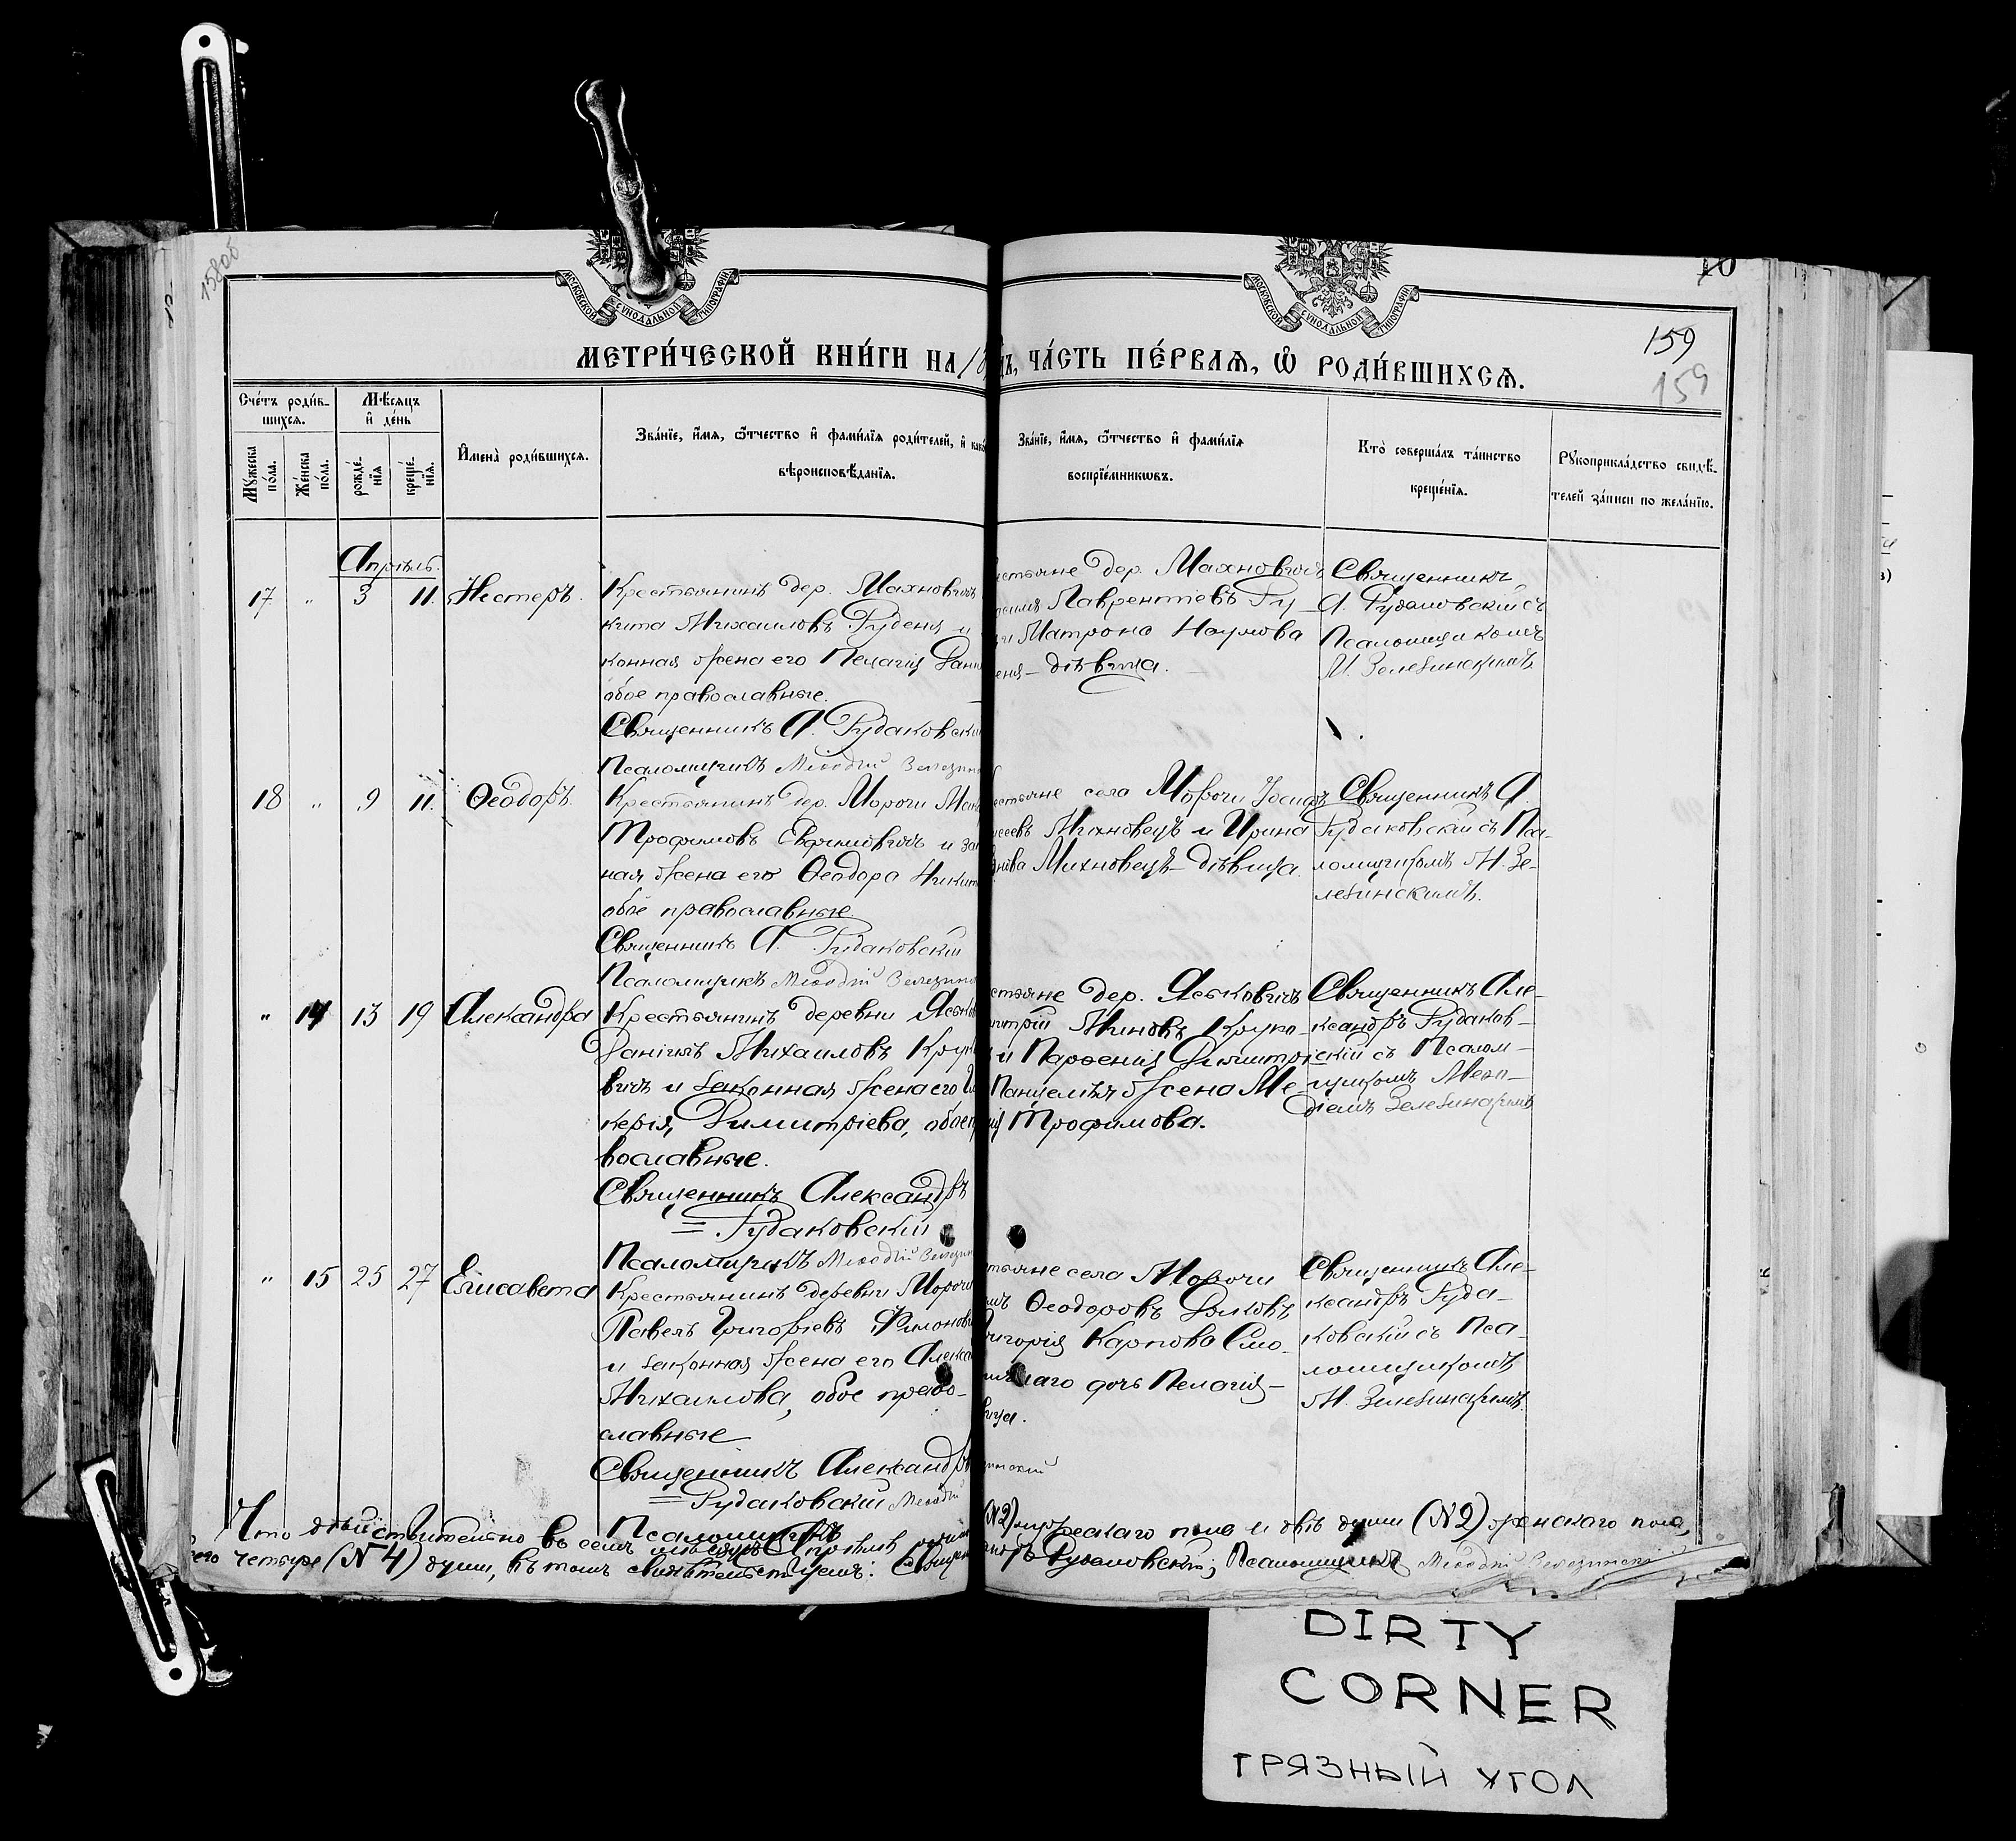 159
159
МОСКОВСКОЙ СѴНОДАЛЬНОЙ ТИПОГРАФІИ
МОСКОВСКОЙ СѴНОДАЛЬНОЙ ТИПОГРАФІИ
МЕТРИ́ЧЕСКОЙ КНИ́ГИ НА
ЧА́СТЬ ПЕ́РВАѦ, Ѡ҆ РОДИ́ВШИХСѦ.
Сче́тъ роди́в-
шихся.
Мѣ́сяцъ
и҆ де́нь
Мꙋ́жеска по́ла.
Же́нска по́ла.
рожде́-
нїя
креще́-
нїя.
И҆мена̀ роди́вшихся.
Зва́нїе, и҆́мя, ѻ҆́тчество и҆ фами́лїя роди́телей, и҆
вѣроисповѣ́данїя.
Зва́нїе, и҆́мя, ѻ҆́тчество и҆ фами́лїя
воспрїе́мникѡвъ.
Кто̀ соверша́лъ та́инство
креще́нїя.
Рꙋкоприкла́дство свидѣ́-
телей за́писи по жела́нїю.
Апрѣль.
17 " 3 11. Нестеръ.
Крестьянинъ дер. Махновичъ
кита Михаиловъ Руденя и
конная жена его Пелагія
обое православные.
Священникъ А. Рудаковскі
Псаломщикъ Меѳодій
дер. Махновичъ
Лаврентіевъ Ру
Матрона Наумова
дѣвица.
Священникъ
А. Рудаковскій съ
Псаломщикомъ
М. Зелезинскимъ
18 " 9 11. Ѳеодоръ.
Крестьянинъ дер. Морочи
Трофимовъ и за
ная жена его Ѳеодора Никит
обое православные
Священникъ А. Рудаковскій
Псаломщикъ Меѳодій
села Морочи
Михновецъ и Ирина
Михновецъ дѣвица.
Священникъ А.
Рудаковскій съ Пса-
ломщикомъ М. Зе-
лезинскимъ.
" 14 13 19 Александра
Крестьянинъ деревни Яськов
Даніилъ Михаиловъ Крук
вичъ и законная жена его
керія, Димитріева, обое п
вославные.
Священникъ Александръ
= Рудаковскій
Псаломщикъ Меѳодій
дер. Яськовичъ
Круко-
и Парѳенія Димитрі
жена Ме-
Трофимова.
Священникъ Але-
ксандръ Рудаков-
скій съ Псалом-
щикомъ Меѳо-
діемъ Зелезинскимъ
" 15 25 27 Елисавета
Крестьянинъ деревни Морочи
Павелъ Григорьевъ Филонов
и законная жена его Алекса
Михаилова, обое право-
славные
Священникъ Александръ
= Рудаковскій Меѳодій
Псаломщикъ
села Морочи
Ѳеодоровъ
Карпова Смо-
дочь Пелагія
Священникъ Але-
ксандръ Руда-
ковскій съ Пса-
ломщикомъ
М. Зелезинскимъ.
Что дѣйствительно въ семъ мѣсяцѣ Апрѣлѣ
(№2) мужескаго пола и двѣ души (№2) женскаго пола,
четыре (№4) души, въ томъ свидѣтельствуемъ:
Рудаковскій; Псаломщикъ Меѳодій
DIRTY
CORNER
ГРЯЗНЫЙ УГОЛ